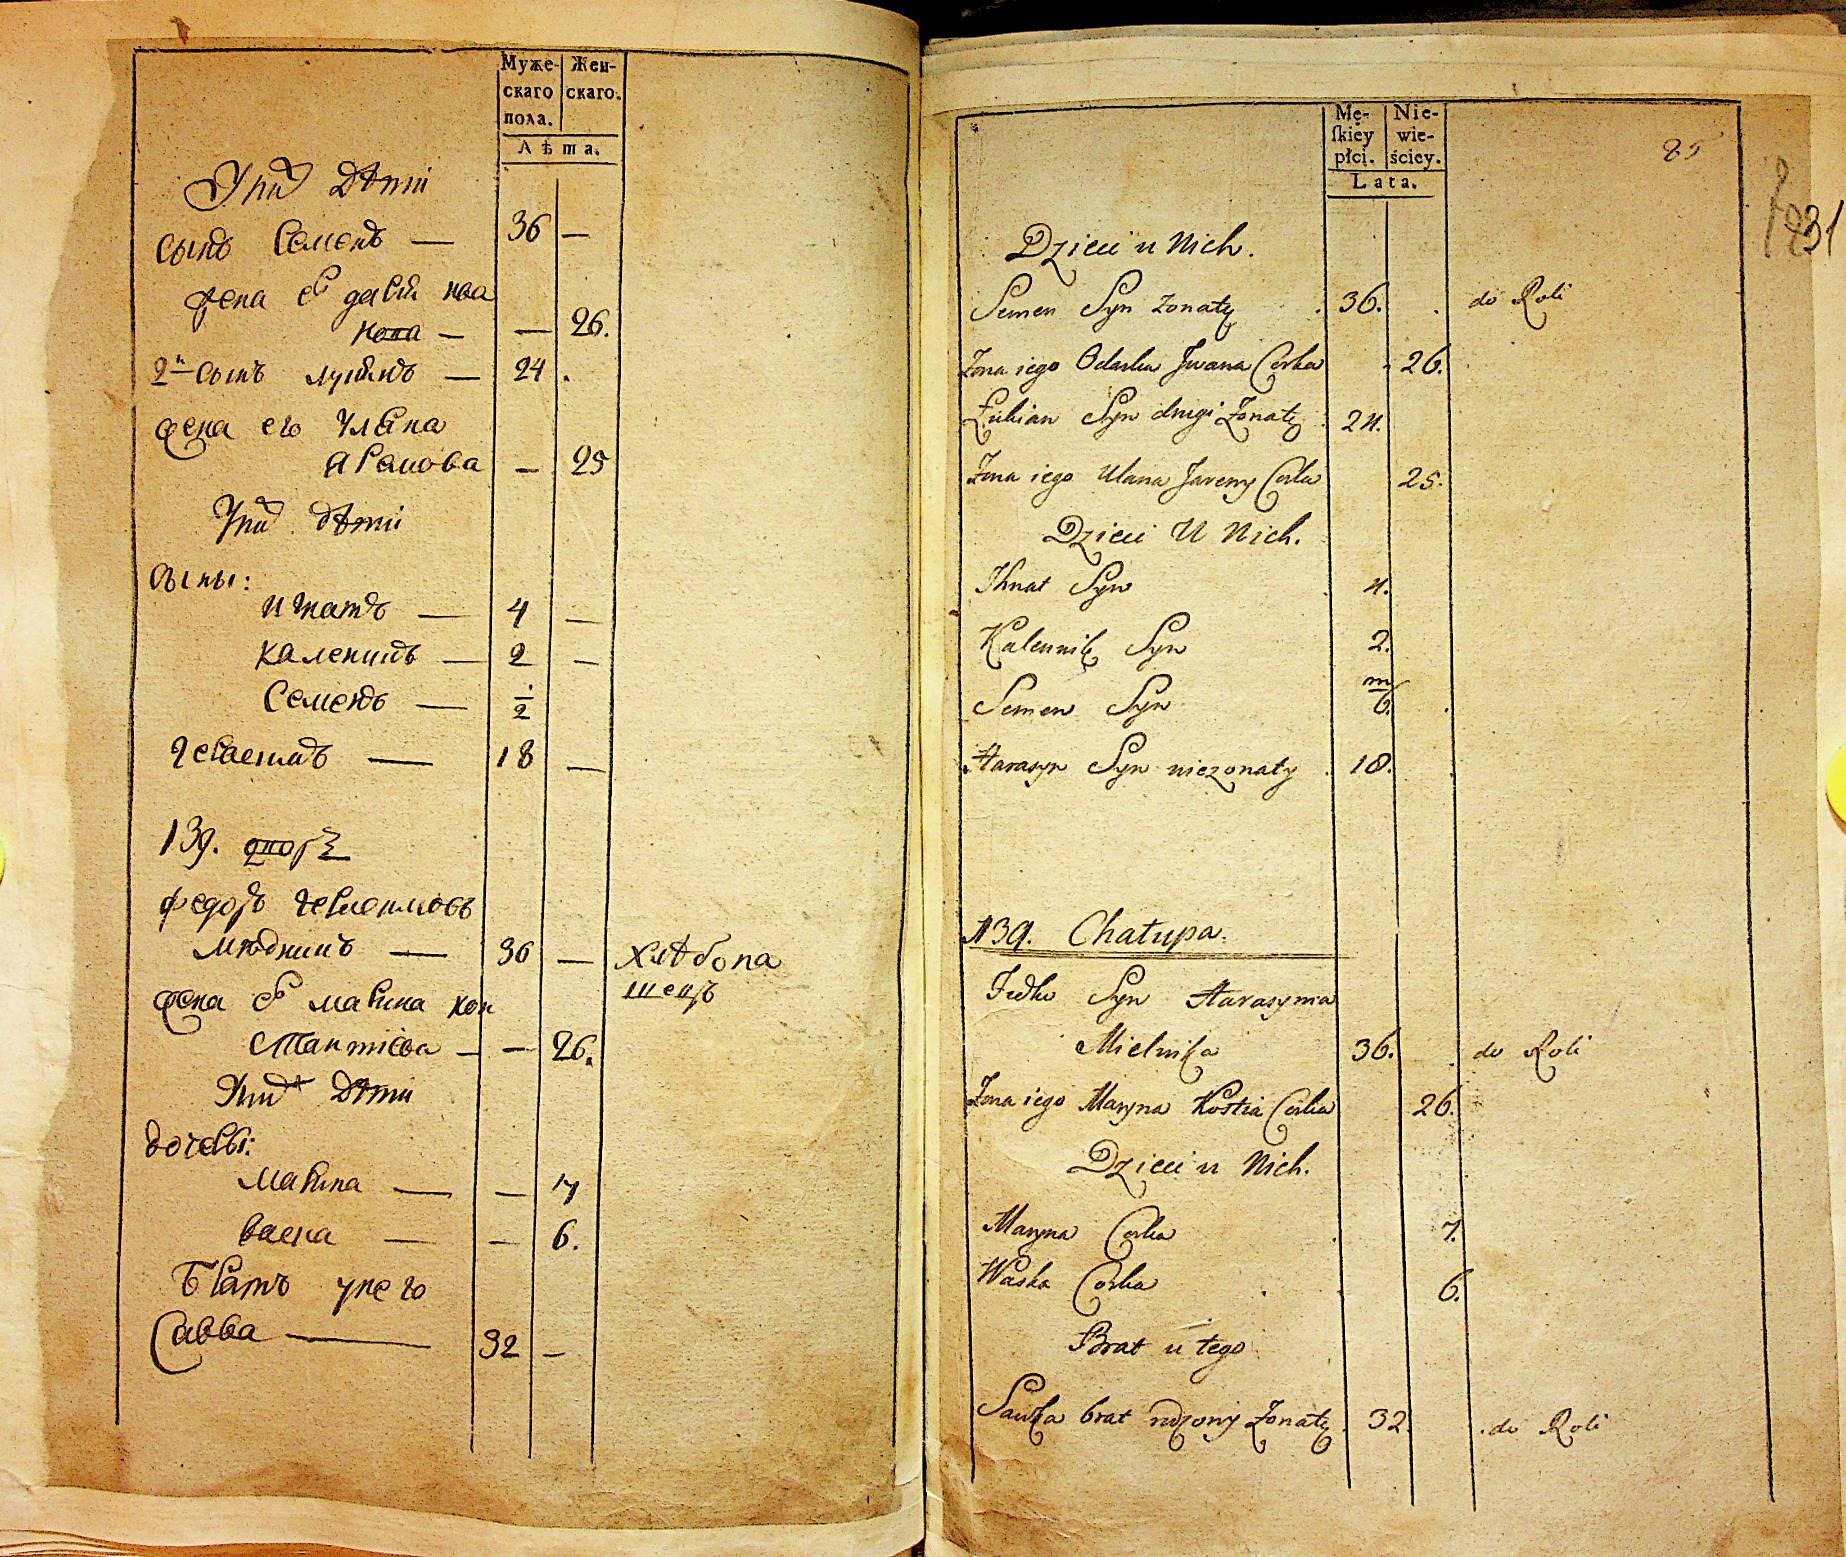 Муже-
скаго
пола.
Жен-
скаго.
Лѣта.
У них Дѣти
сынъ Семенъ — 36 —
жена ег
— — 26.
2й сынъ лукянъ — 24 .
жена его Уляна
— 25
У них дѣти
сыны:
игнатъ — 4 —
каленикъ — 2 —
Семенъ — 1/2
18 —
139. дворъ
федоръ
мѣдникъ — 36 — Хлѣбопа
шецъ
жена ег марина кон
стантиева — — 26.
У них Дѣти
дочери:
марина — — 7
васка — — 6.
Братъ у него
Савва — 32 —
Mę-
skiey
płci.
Nie-
wie-
ściey.
Lata.
85
231
Dzieci u Nich.
Semen Syn żonaty . 36. . do Roli
Żona iego Odarka Jwana Corka 26.
Łukian Syn drugi Żonaty 24.
Żona iego Ulana Jaremy Corka 25.
Dzieci U Nich.
Ihnat Syn 4.
Kalennik Syn 2.
Semen Syn m/6.
Harasym Syn nieżonaty 18.
139. Chałupa.
Fedko Syn Harasyma
Mielnika 36. do Roli
Żona iego Maryna Kostia Corka 26.
Dzieci u Nich.
Maryna Corka 7.
Waska Corka 6.
Brat u tego
Sawka brat rodzony Żonaty 32. . do Roli